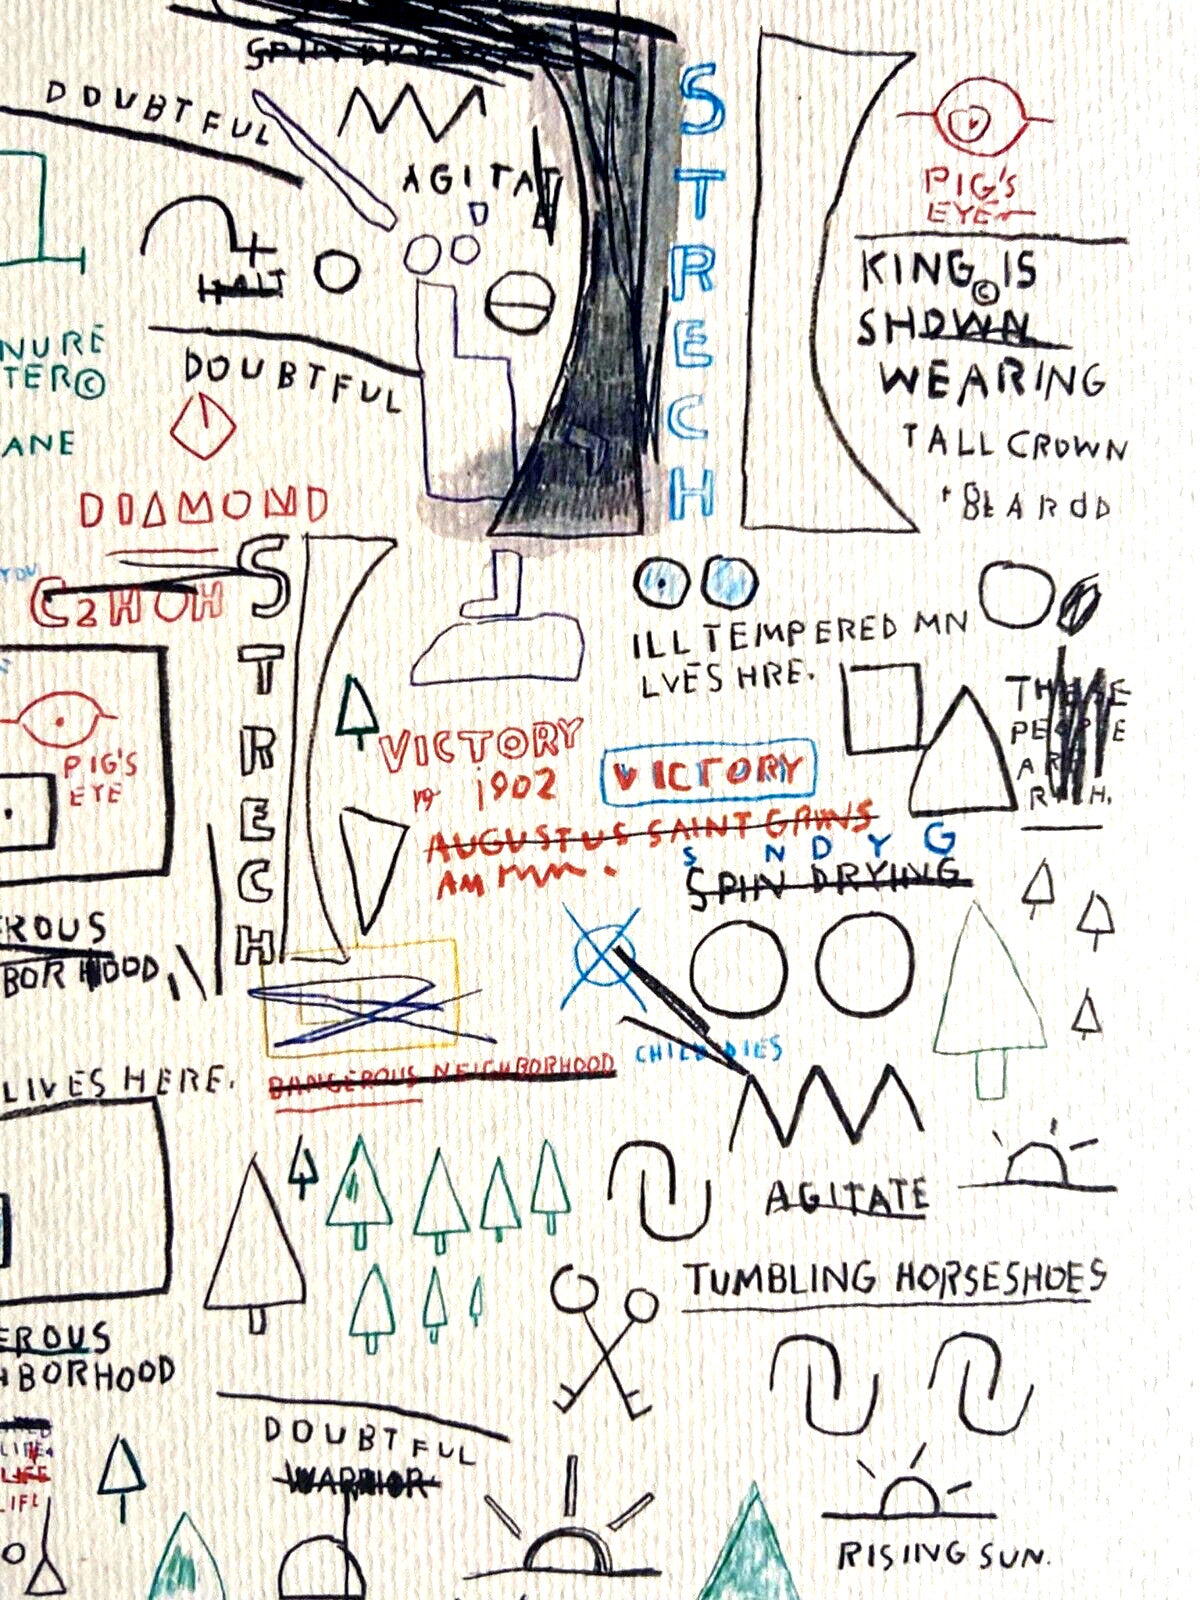 SPIN DRYING
DOUBTFUL
AGITAT
HALT
DOUBTFUL
NURE
TER©
ANE
DIAMOND
C2HOH
STRECH
STRECH
PIG'S
EYE
KING© IS
SHOWN
WEARING
TALL CROWN
BEARDD
ILL TEMPERED MN
LVES HRE.
THESE
PEOPLE
ARE
RICH.
PIG'S
EYE
VICTORY
1902
VICTORY
AUGUSTUS SAINT GAINS
AM
S NDYG
SPIN DRYING
EROUS
BORHOOD,
CHILD DIES
LIVES HERE.
DANGEROUS NEIGHBORHOOD
AGITATE
TUMBLING HORSESHOES
EROUS
HBORHOOD
DOUBTFUL
WARRIOR
LIFE
LIFE
LIFE
RISIING SUN.